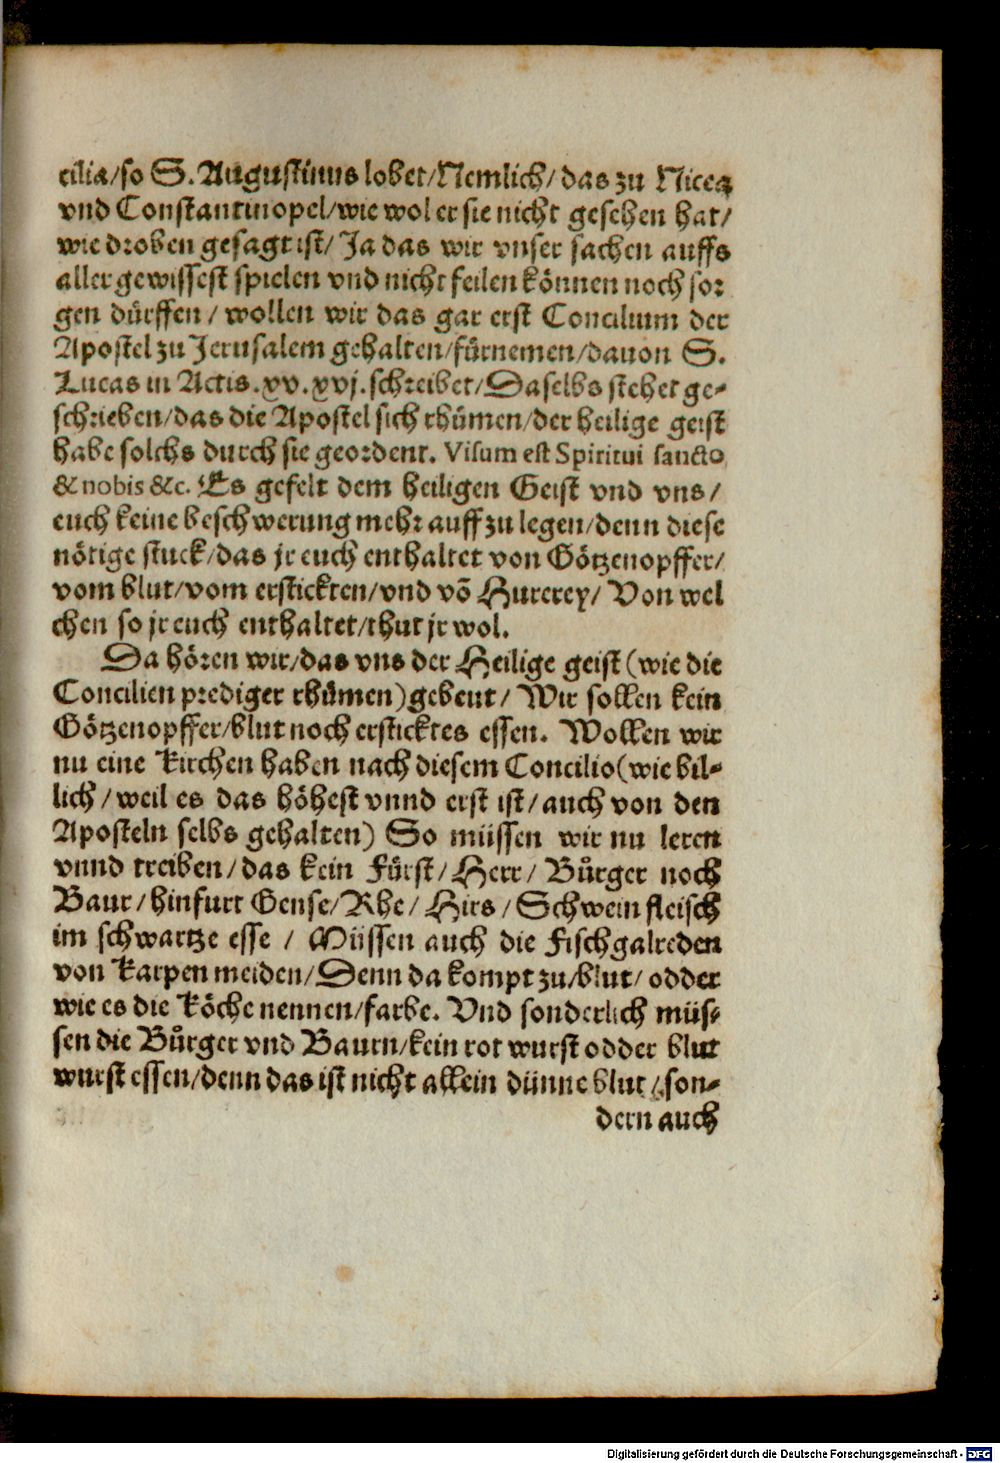 cilia/so S. Augustinus lobet/Nemlich/das zu Nicea
vnd Constantinopel/wie wol er sie nicht gesehen hat/
wie droben gesagt ist/ Ja das wir vnser sachen auffs
aller gewissest spielen vnd nicht feilen können noch sor
gen dürffen / wollen wir das gar erst Concilium der
Apostel zu Jerusalem gehalten/fürnemen/dauon S.
Lucas in Actis.xv.xvj.schreibet/Daselbs stehet ge-
schrieben/das die Apostel sich rhümen/der heilige geist
habe solchs durch sie geordent. Visum est Spiritui sancto
& nobis &c. Es gefelt dem heiligen Geist vnd vns/
euch keine beschwerung mehr auff zu legen/denn diese
nötige stuck/das jr euch enthaltet von Götzenopffer/
vom blut/vom erstickten/vnd võ Hurerey/ Von wel
chen so jr euch enthaltet/thut jr wol.
Da hören wir/das vns der Heilige geist (wie die
Concilien prediger rhümen) gebeut/ Wir sollen kein
Götzenopffer/blut noch ersticktes essen. Wollen wir
nu eine Kirchen haben nach diesem Concilio (wie bil-
lich / weil es das höhest vnnd erst ist/ auch von den
Aposteln selbs gehalten) So müssen wir nu leren
vnnd treiben/das kein Fürst/Herr/ Bürger noch
Baur/hinfurt Gense/Rhe/ Hirs/Schwein fleisch
im schwartze esse / Müssen auch die Fischgalreden
von Karpen meiden/Denn da kompt zu/blut/ odder
wie es die Köche nennen/farbe. Vnd sonderlich müs-
sen die Bürger vnd Baurn/kein rot wurst odder blut
wurst essen/denn das ist nicht allein dünne blut/son-
dern auch
Digitalisierung gefördert durch die Deutsche Forschungsgemeinschaft - DFG